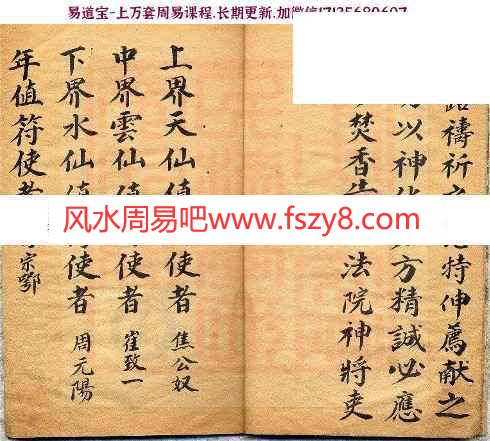 易道宝-上万套周易课程,长期更新,加微信17135680607
禱祈之特伸薦献之
以神方精誠必應
焚香法院神將吏
上界天仙值使者 焦公奴
中界雲仙值使者 崔致一
下界水仙值使者 周元陽
年值符使者宗鄂
风水周易吧www.fszy8.com